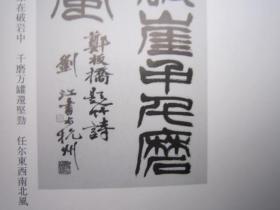 破崖中千磨
鄭板橋題竹詩
劉江書於杭州
在破岩中　千磨万罐還堅勁　任尔東西南北風